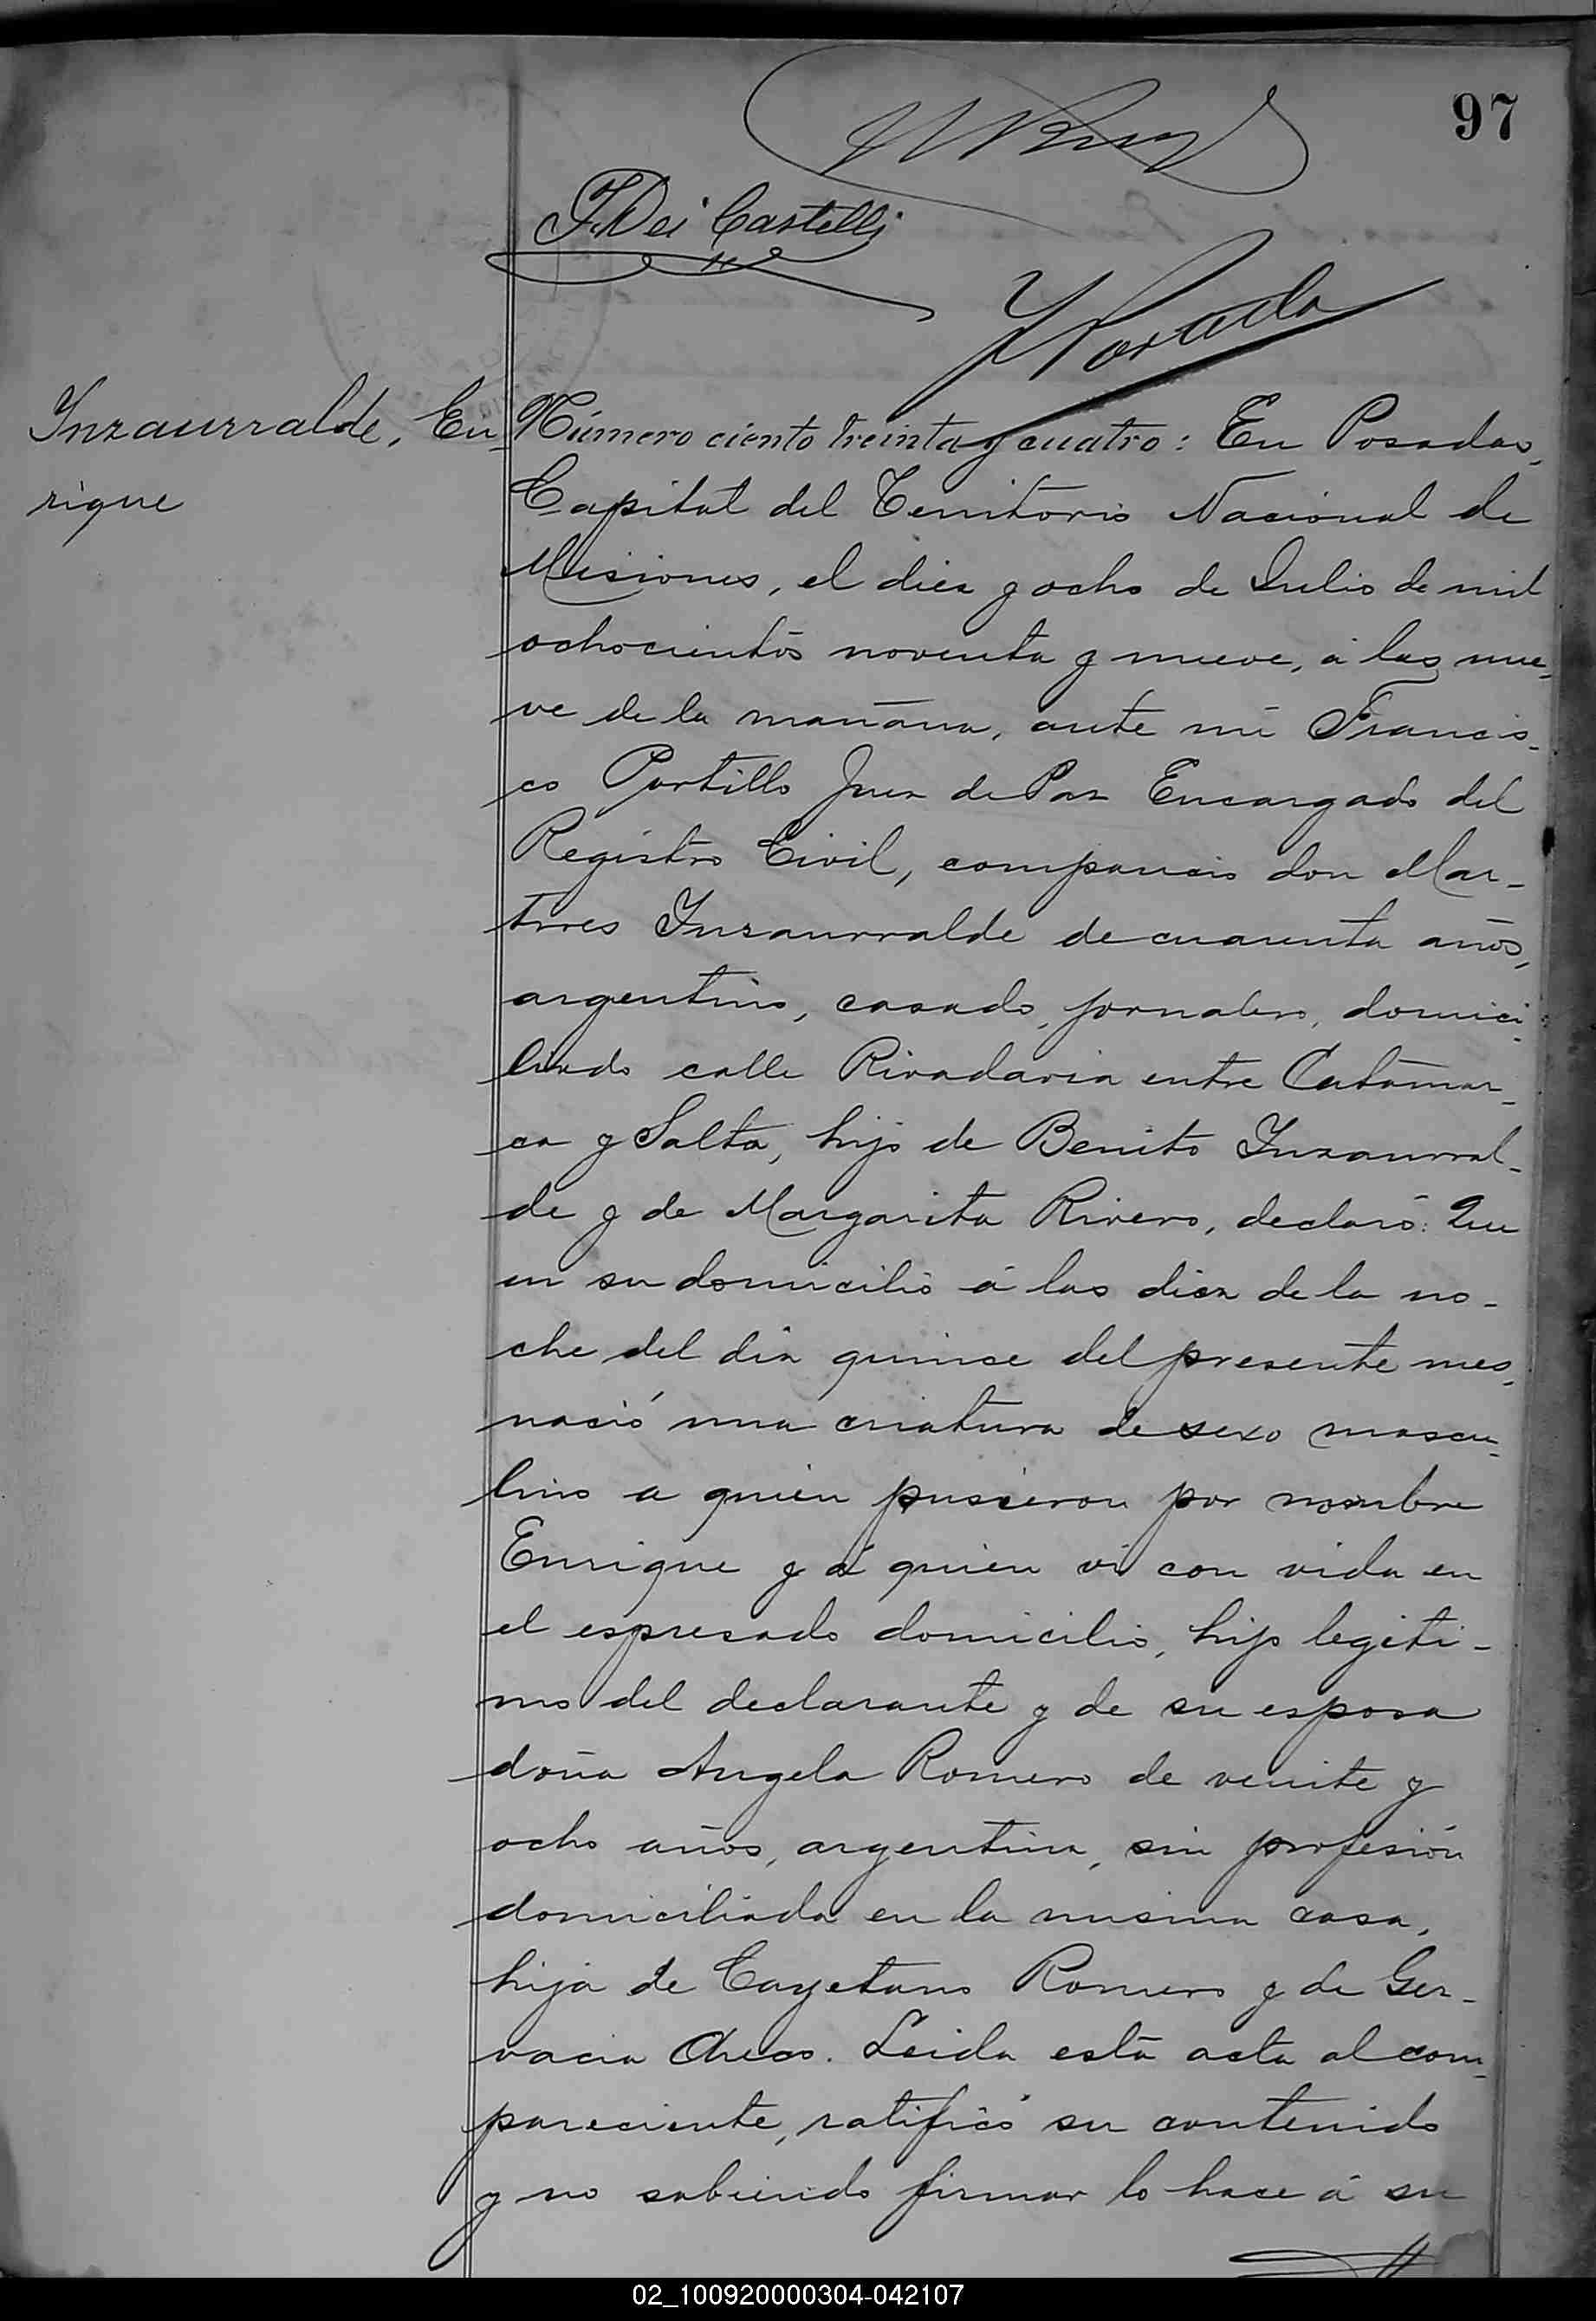 97
F. Dei Castelli
Inzaurralde, En-
rique
Número ciento treinta y cuatro: En Posadas,
Capital del Territorio Nacional de
Misiones, el diez y ocho de Julio de mil
ochocientos noventa y nueve, á las nue-
ve de la mañana, ante mi Francis-
co Portillo Juez de Paz Encargado del
Registro Civil, compareció don Mar-
tires Inzaurralde de cuarenta años,
argentino, casado, jornalero, domici-
liado calle Rivadavia entre Catamar-
ca y Salta, hijo de Benito Inzaurral-
de y de Margarita Rivero, declaró: Que
en su domicilio á las diez de la no-
che del dia quince del presente mes,
nació una criatura de sexo mascu-
lino a quien pusieron por nombre
Enrique y á quien vi con vida en
el espresado domicilio, hijo legiti-
mo del declarante y de su esposa
doña Angela Romero de veinte y
ocho años, argentina, sin profesión
domiciliada en la misma casa,
hija de Cayetano Romero y de Ger-
vacia. Leida esta acta al com-
pareciente, ratificó su contenido
y no sabiendo firmar lo hace á su
02_100920000304-042107